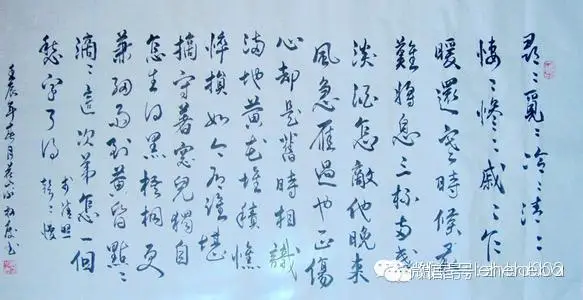 尋〻覓〻冷〻清〻
悽〻慘〻戚〻乍
暖還寒時候最
難將息三杯兩盞
淡酒怎敵他晚來
風急雁過也正傷
心却是舊時相識
滿地黃花堆積憔
悴損如今有誰堪
摘守著窗兒獨自
怎生得黑梧桐更
兼細雨到黃昏點〻
滴〻這次第怎一個
愁字了得
李清照
聲〻慢
壬辰年
微信号